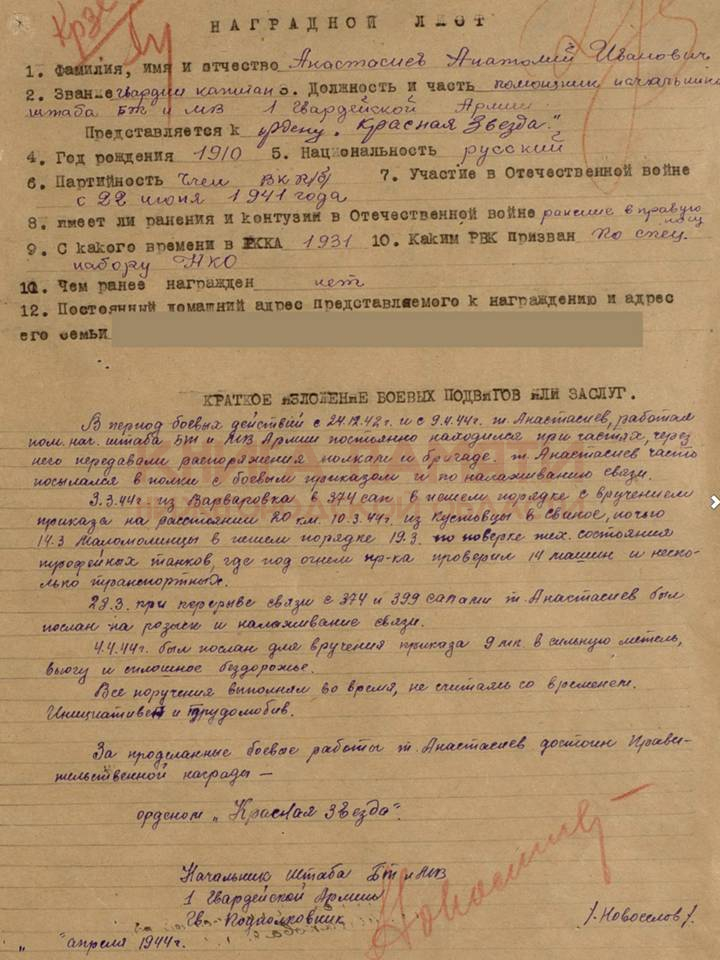 НАГРАДНОЙ ЛИСТ
1. Фамилия, имя и отчество Анастасиев Анатолий Иванович
2. Звание гвардии капитан 3. Должность и часть помощник начальника
штаба БТ и МВ 1 Гвардейской Армии
Представляется к ордену „Красная Звезда"
4. Год рождения 1910 5. Национальность русский
6. Партийность Член ВКП/б/ 7. Участие в Отечественной войне
с 22 июня 1941 года
8. имеет ли ранения и контузии в Отечественной войне ранение в правую ногу
9. С какого времени в РККА 1931 10. Каким РВК призван По спец.
набору НКО
11. Чем ранее награжден нет
12. Постоянный домашний адрес представляемого к награждению и адрес
его семьи
КРАТКОЕ ИЗЛОЖЕНИЕ БОЕВЫХ ПОДВИГОВ ИЛИ ЗАСЛУГ.
В период боевых действий с 24.12.42г. и с 9.4.44г. т. Анастасиев, работая
пом. нач. штаба БТ и МВ Армии постоянно находился при частях, через
него передавали распоряжения полкам и бригаде. т. Анастасиев часто
посылался в полки с боевым приказом и по налаживанию связи.
9.3.44г. из Варваровка в 374 сап в пешем порядке с вручением
приказа на расстоянии 20 км. 10.3.44г. из Кустовцы в Сваное, ночью
14.3 Маломолинцы в пешем порядке 19.3. по поверке тех. состояния
трофейных танков, где под огнем пр-ка проверил 14 машин и неско-
лько транспортных.
28.3. при перерыве связи с 374 и 399 сапами т. Анастасиев был
послан на розыск и налаживание связи.
4.4.44г. был послан для вручения приказа 9 тп. в сильную метель,
вьюгу и сплошное бездорожье.
Все поручения выполнял во время, не считаясь со временем.
Инициативен и трудолюбив.
За проделанные боевые работы т. Анастасиев достоин Прави-
тельственной награды —
орденом „Красная Звезда".
Начальник штаба БТ и МВ
1 Гвардейской Армии
Гв. Подполковник /Новоселов/.
„ " апреля 1944г.